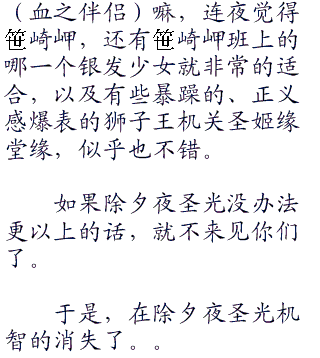 （血之伴侣）嘛，连夜觉得
笹崎岬，还有笹崎岬班上的
哪一个银发少女就非常的适
合，以及有些暴躁的、正义
感爆表的狮子王机关圣姬缘
堂缘，似乎也不错。
如果除夕夜圣光没办法
更以上的话，就不来见你们
了。
于是，在除夕夜圣光机
智的消失了。。